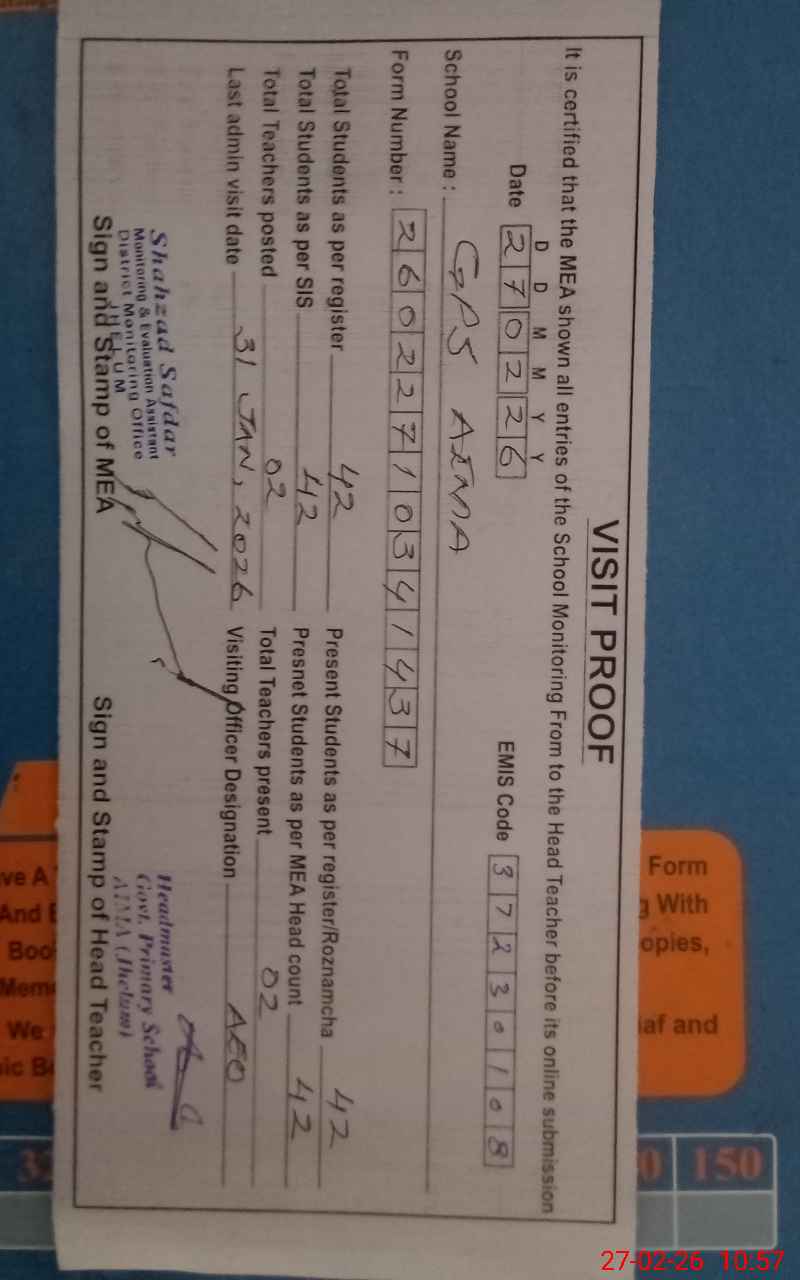 VISIT PROOF
It is certified that the MEA shown all entries of the School Monitoring From to the Head Teacher before its online submission
D D M M Y Y
Date 270226 EMIS Code 37230108
School Name : GPS AIMA
Form Number : 26022710341437
Total Students as per register 42 Present Students as per register/Roznamcha 42
Total Students as per SIS 42 Presnet Students as per MEA Head count 42
Total Teachers posted 02 Total Teachers present 02
Last admin visit date 31 JAN, 2026 Visiting Officer Designation AEO
Shahzad Safdar
Monitoring & Evaluation Assistant
District Monitoring Office
JHELUM
Sign and Stamp of MEA
Headmaster
Govt. Primary School
AIMA (Jhelum)
Sign and Stamp of Head Teacher
Form
With
opies,
af and
ve A
And
Boo
Mem
We
150
27-02-26 10:57